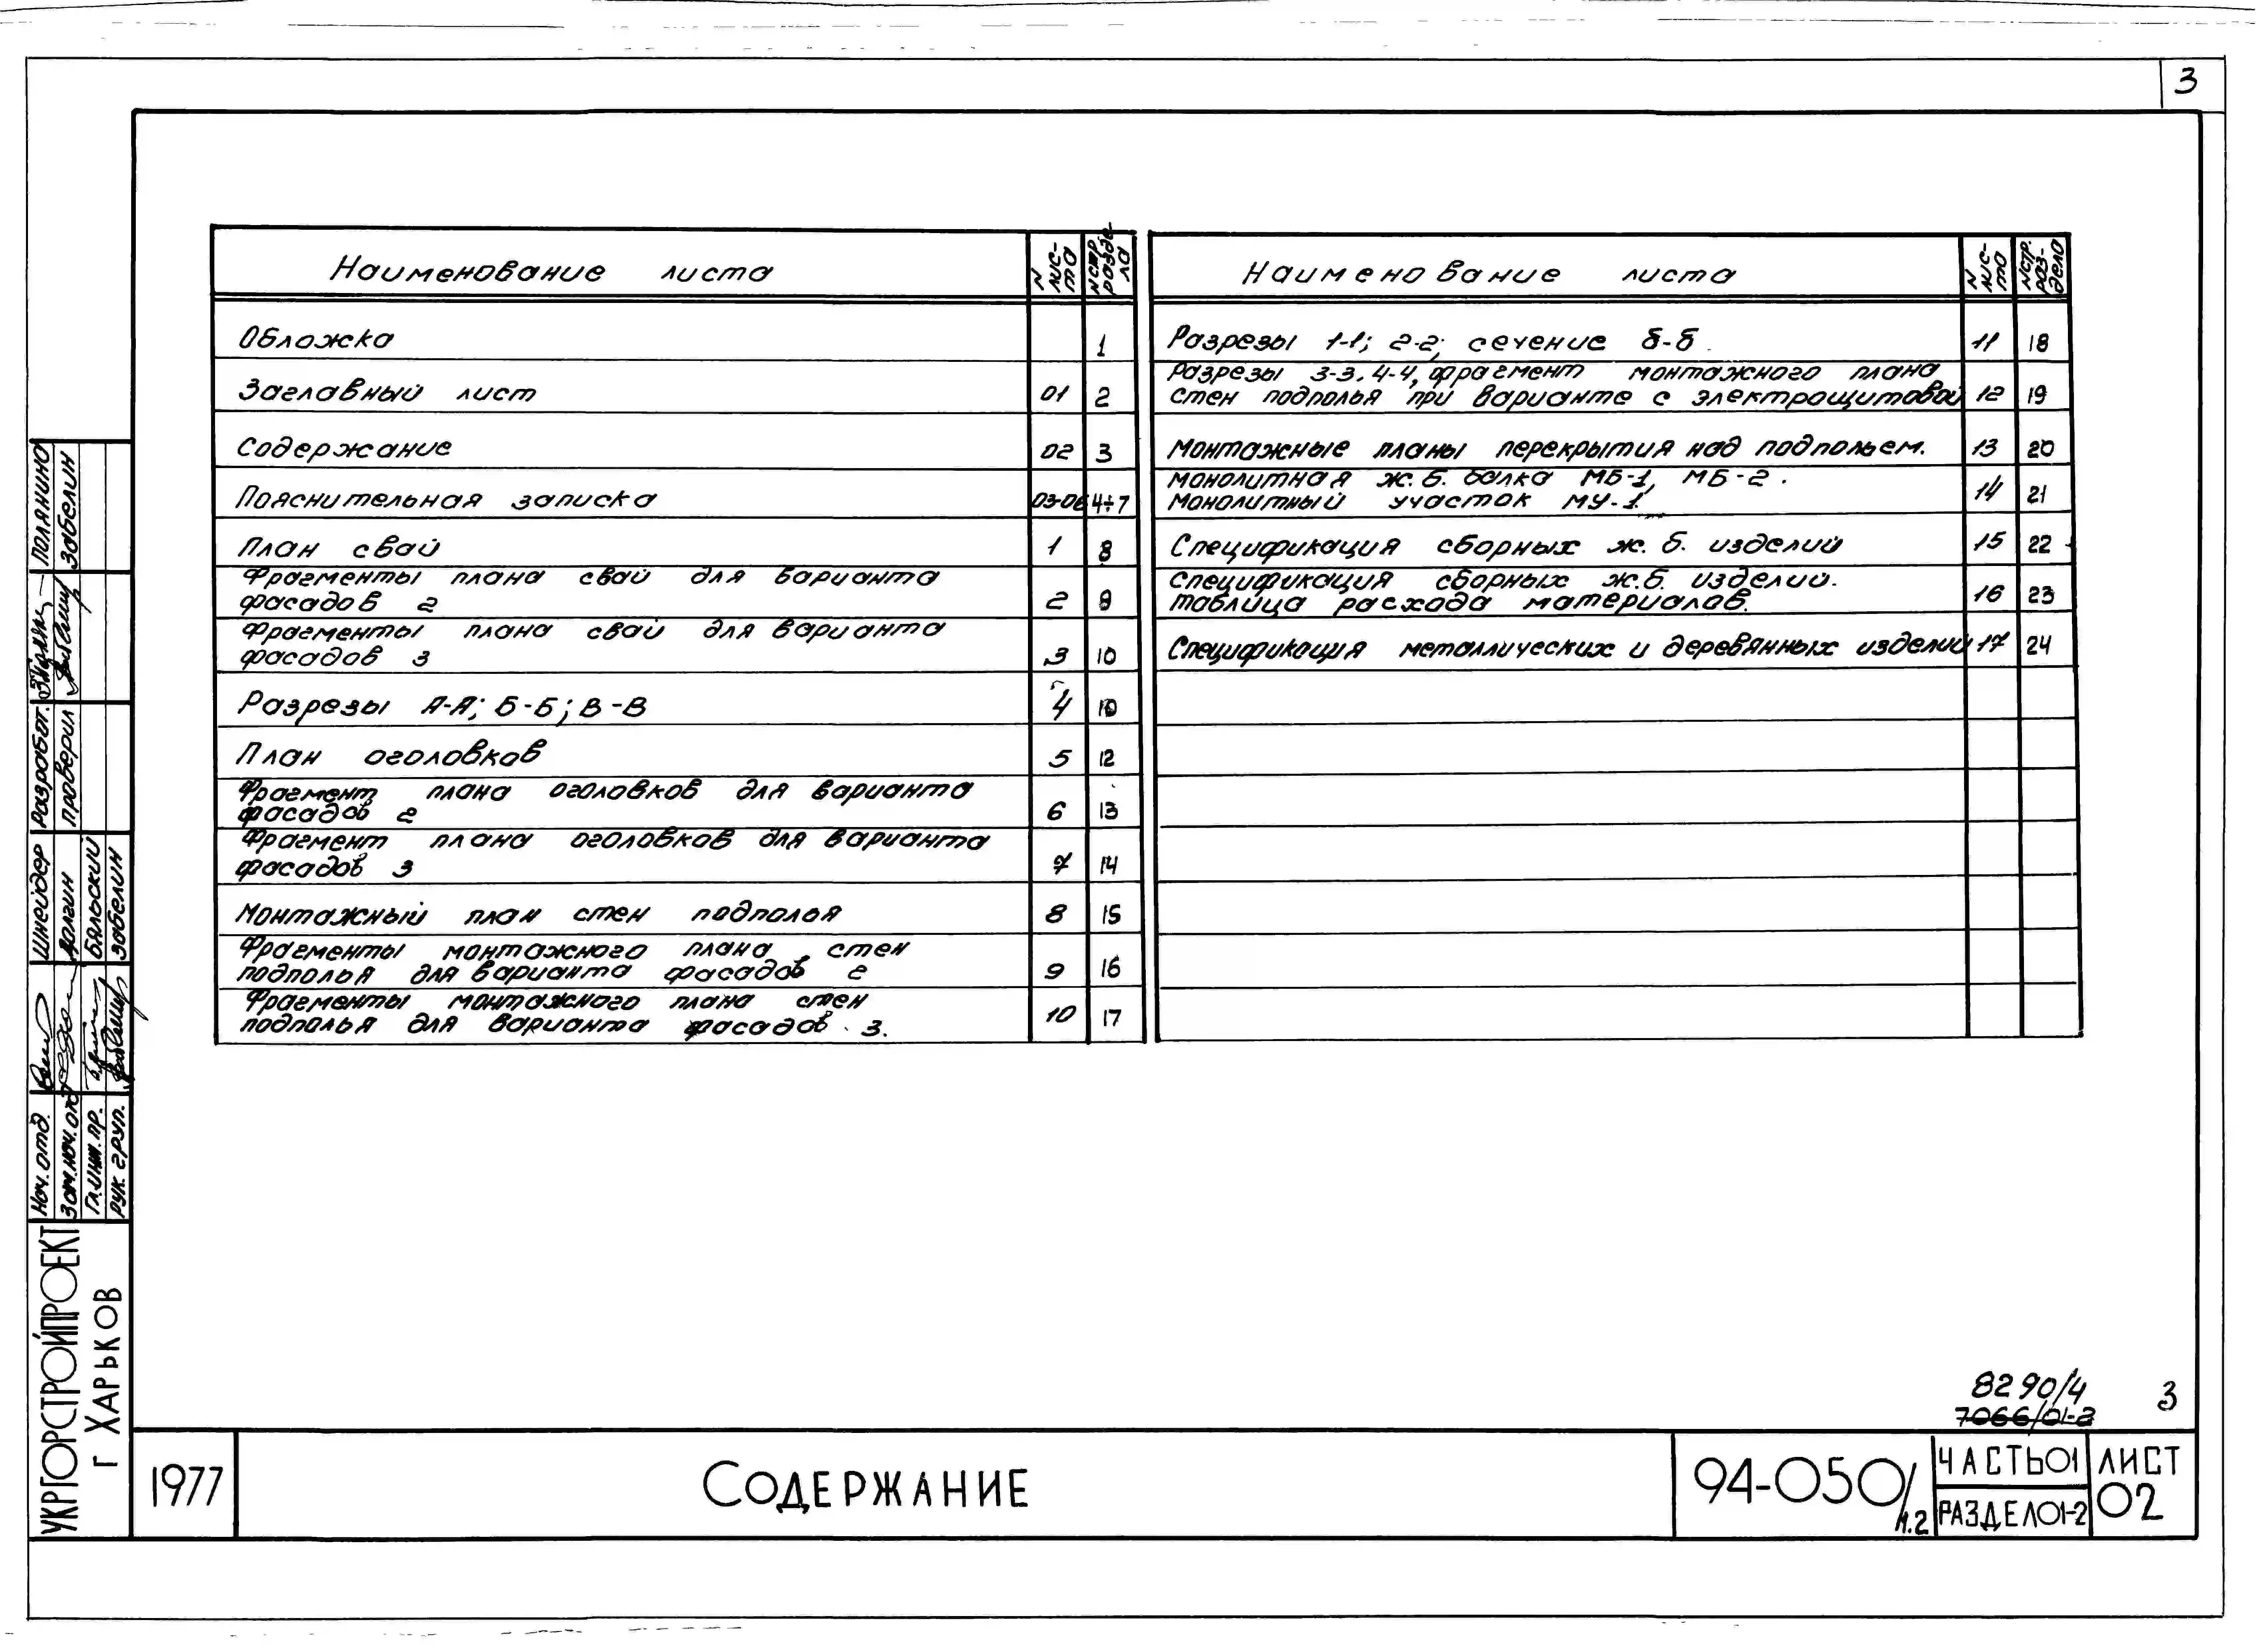 3
Наименование листа | N листа | N стр. раздела
Обложка | 1
Заглавный лист | 01 | 2
Содержание | 02 | 3
Пояснительная записка | 03-06 | 4÷7
План свай | 1 | 8
Фрагменты плана свай для варианта
фасадов 2 | 2 | 9
Фрагменты плана свай для варианта
фасадов 3 | 3 | 10
Разрезы А-А; Б-Б; В-В | 4
План оголовков | 5 | 12
Фрагмент плана оголовков для варианта
фасадов 2 | 6 | 13
Фрагмент плана оголовков для варианта
фасадов 3 | 7 | 14
Монтажный план стен подполья | 8 | 15
Фрагменты монтажного плана стен
подполья для варианта фасадов 2 | 9 | 16
Фрагменты монтажного плана стен
подполья для варианта фасадов 3. | 10 | 17
Наименование листа | N листа | N стр. раздела
Разрезы 1-1; 2-2; сечение б-б. | 11 | 18
Разрезы 3-3, 4-4, фрагмент монтажного плана
стен подполья при варианте с электрощитовой | 12 | 19
Монтажные планы перекрытия над подпольем. | 13 | 20
Монолитная ж.б. балка МБ-1, МБ-2.
Монолитный участок МУ-1 | 14 | 21
Спецификация сборных ж.б. изделий | 15 | 22
Спецификация сборных ж.б. изделий.
Таблица расхода материалов. | 16 | 23
Спецификация металлических и деревянных изделий | 17 | 24
Полянина
Забелин
Разработ.
Проверил
Шнейдер
Долгин
Бяльский
Забелин
Нач. отд.
Зам. нач. отд
Гл. инж. пр.
Рук. груп.
УКРГОРСТРОЙПРОЕКТ
г Харьков
8290/4 3
7066/01-2
1977
Содержание
94-050/1.2
ЧАСТЬ 01
РАЗДЕЛ 01-2
ЛИСТ
02